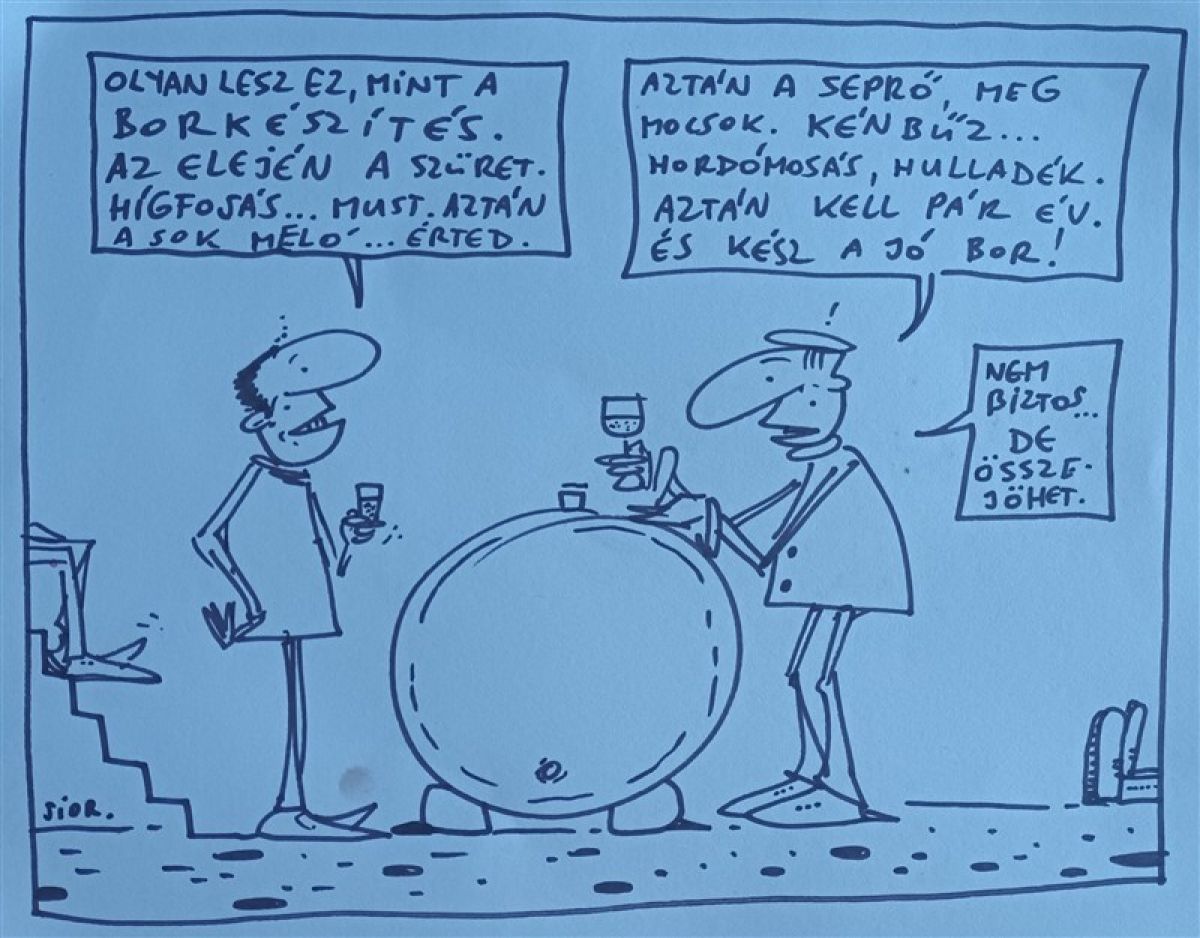 OLYAN LESZ EZ, MINT A
BORKÉSZÍTÉS.
AZ ELEJÉN A SZÜRET.
HÍGFOSÁS... MUST. AZTÁN
A SOK MELÓ... ÉRTED.
AZTÁN A SEPRŐ, MEG
MOCSOK. KÉNBŰZ...
HORDÓMOSÁS, HULLADÉK.
AZTÁN KELL PÁR ÉV.
ÉS KÉSZ A JÓ BOR!
!
NEM
BIZTOS...
DE
ÖSSZE-
JÖHET.
SIOR.